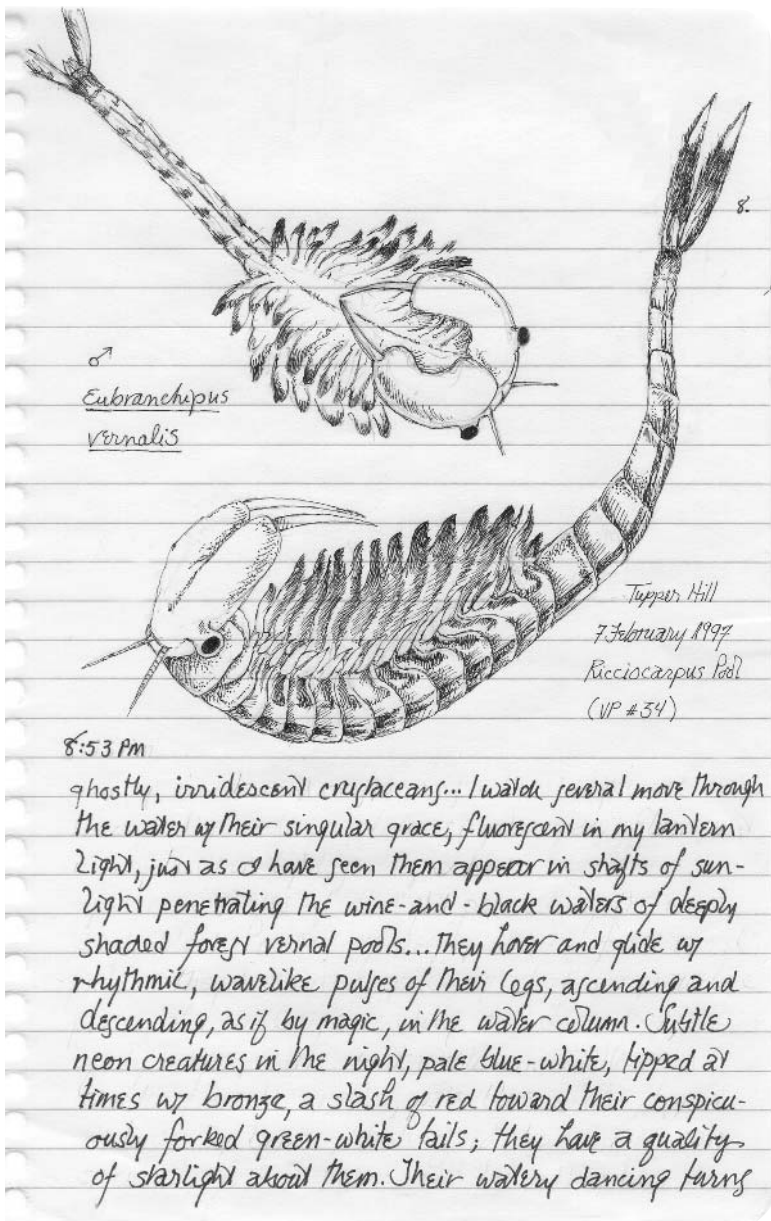 8.
♂
Eubranchipus
vernalis
Tupper Hill
7 February 1997
Ricciocarpus Pool
(VP #34)
8:53 PM
ghostly, irridescent crustaceans... I watch several move through
the water w/ their singular grace, fluorescent in my lantern
light, just as I have seen them appear in shafts of sun-
light penetrating the wine-and-black waters of deeply
shaded forest vernal pools... They hover and glide w/
rhythmic, wavelike pulses of their legs, ascending and
descending, as if by magic, in the water column. Subtle
neon creatures in the night, pale blue-white, tipped at
times w/ bronze, a slash of red toward their conspicu-
ously forked green-white tails; they have a quality
of starlight about them. Their watery dancing turns